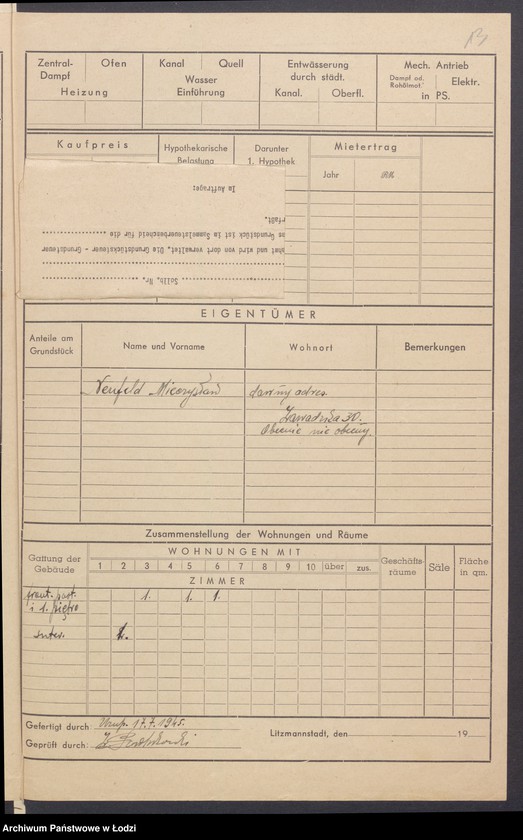 Zentral-
Dampf
Ofen
Heizung
Kanal
Quell
Wasser
Einführung
Entwässerung
durch städt.
Kanal.
Oberfl.
Mech. Antrieb
Dampf od.
Rohölmot.
Elektr.
in PS.
Kaufpreis
Hypothekarische
Belastung
Darunter
1. Hypothek
Mietertrag
Jahr
RM
Im Auftrage:
erfaßt.
Grundstück ist im Sammelsteuerbescheid für die
und wird von dort verwaltet. Die Grundstücksteuer - Grundsteuer
Nr.
EIGENTÜMER
Anteile am
Grundstück
Name und Vorname
Wohnort
Bemerkungen
Neufeld Mieczysław
dawny adres.
Zawadzka 30.
Obecnie nie obecny.
Zusammenstellung der Wohnungen und Räume
Gattung der
Gebäude
WOHNUNGEN MIT
1 2 3 4 5 6 7 8 9 10 über zus.
ZIMMER
Geschäfts-
räume
Säle
Fläche
in qm.
front. part. 1. 1. 1.
i 1. piętro
suter.
Gefertigt durch: 17.7.1945.
Geprüft durch:
Litzmannstadt, den 19
Archiwum Państwowe w Łodzi